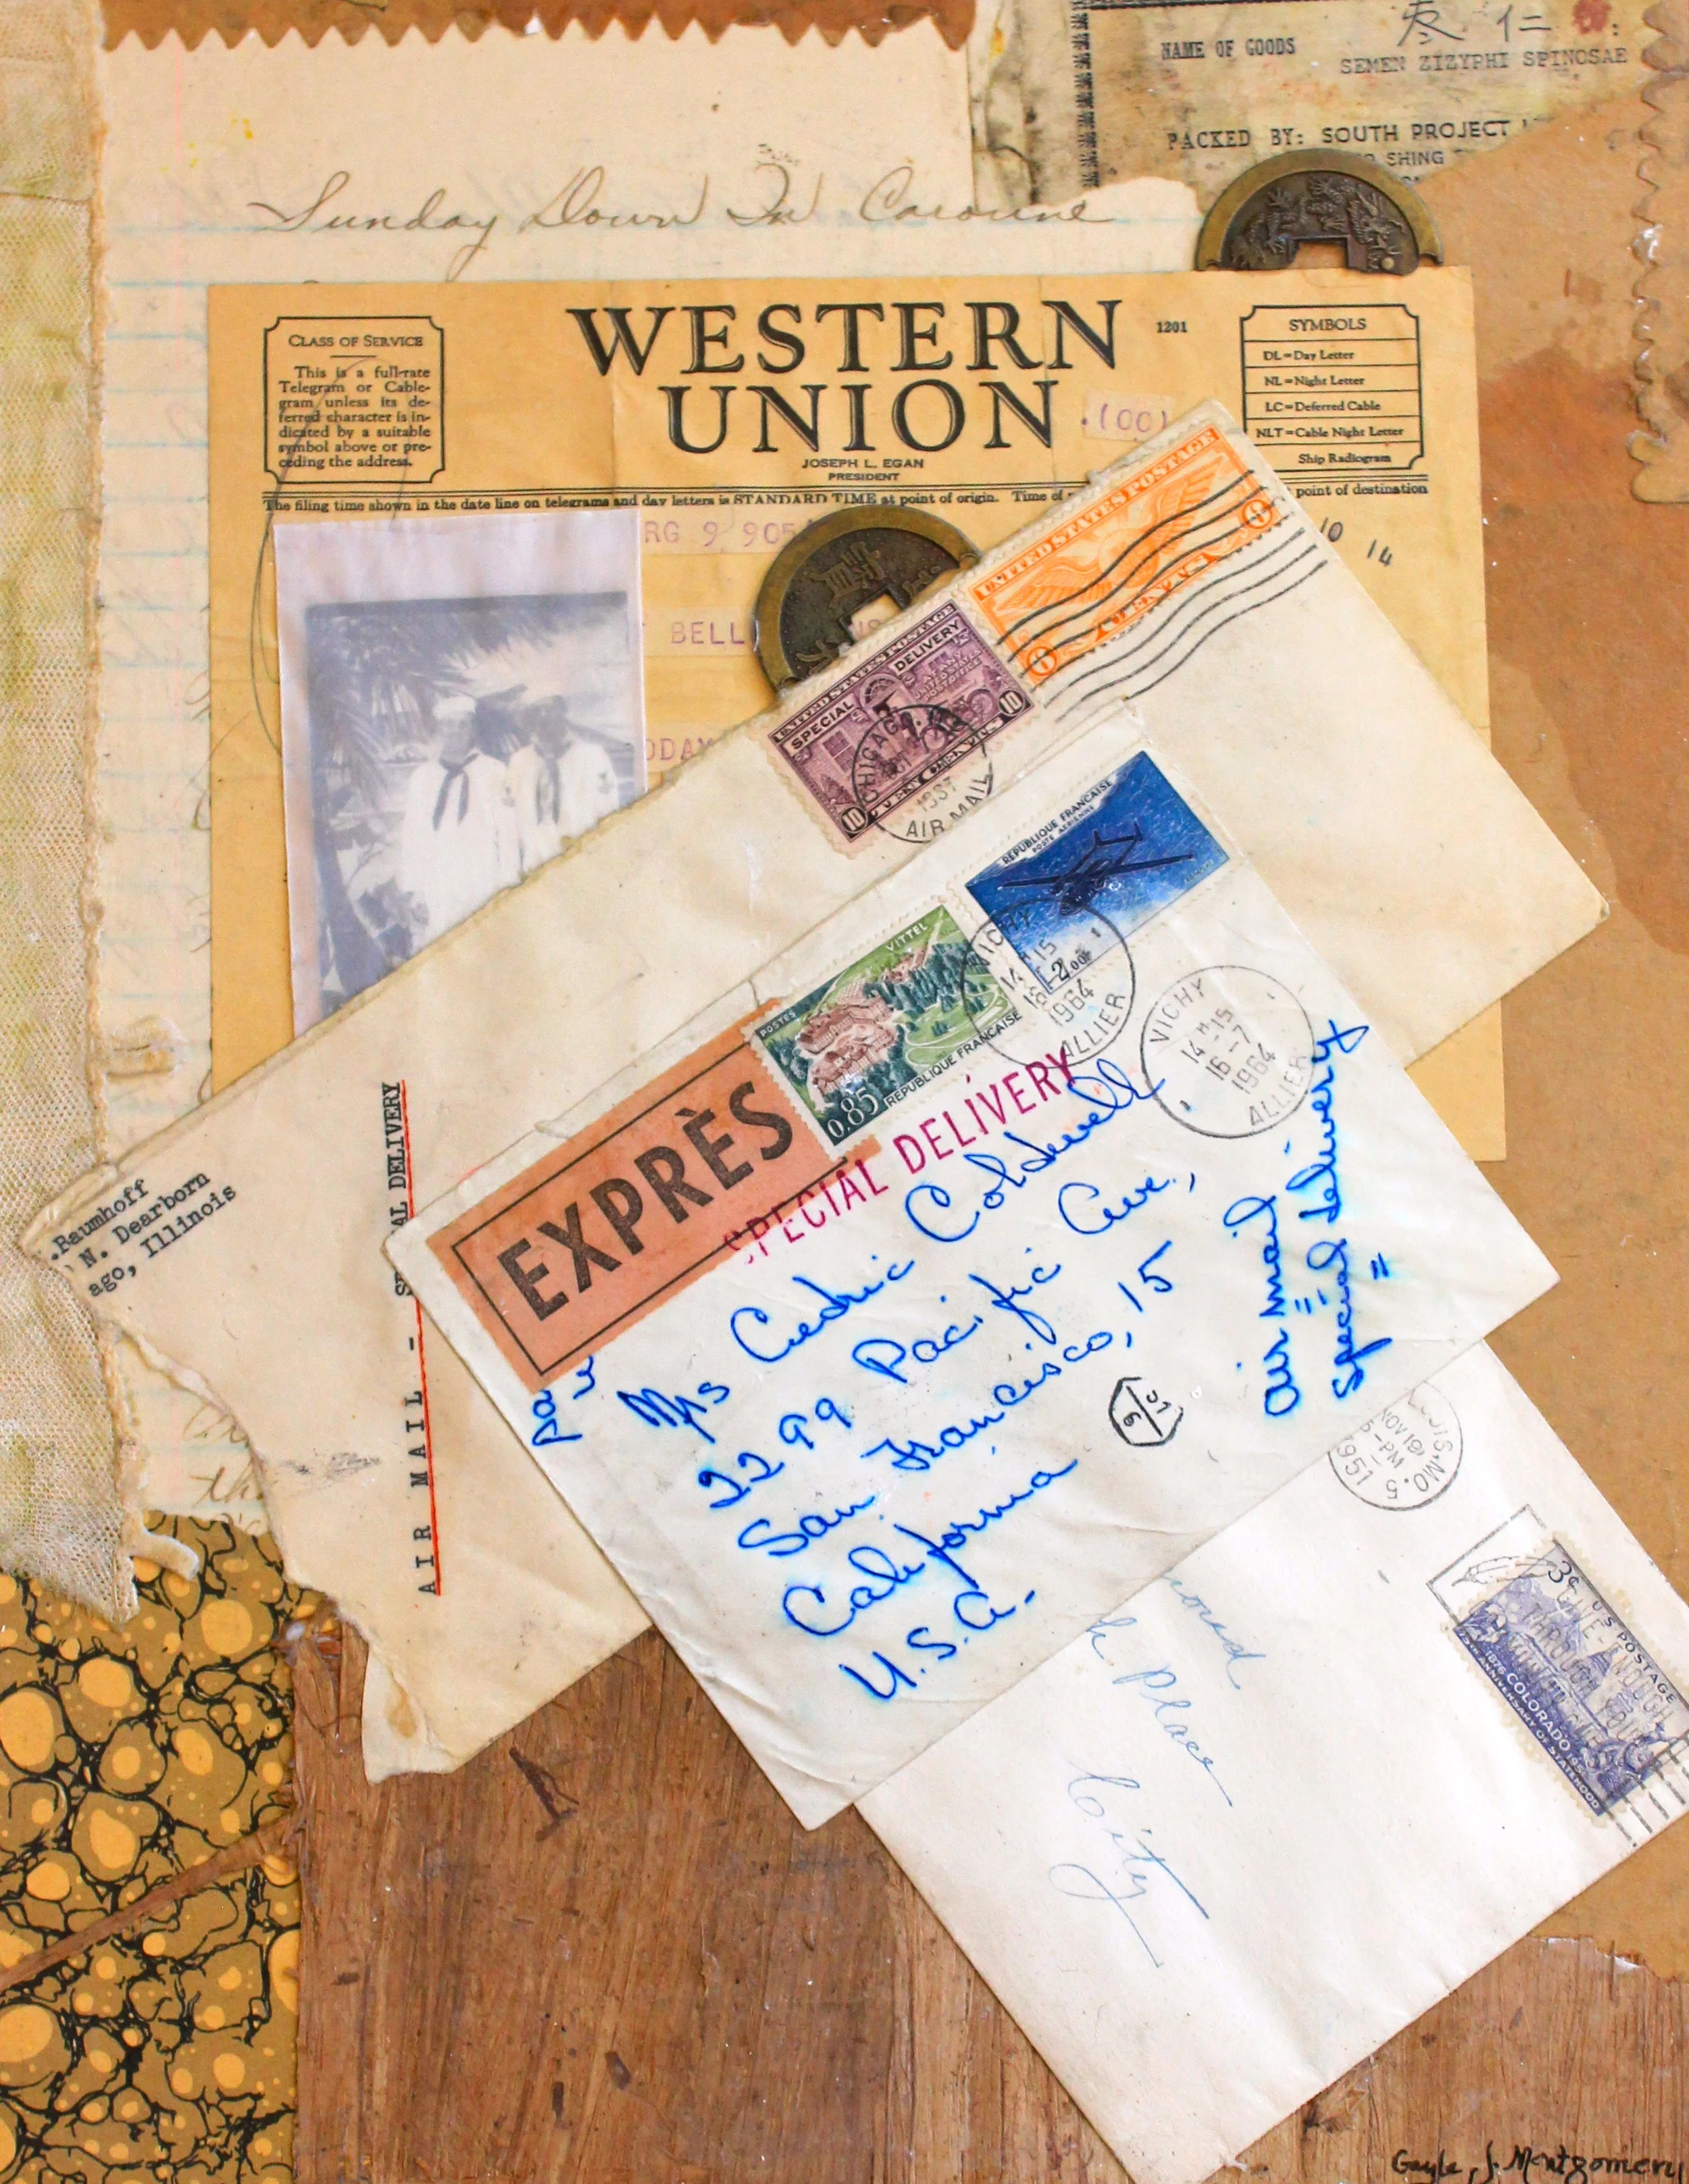 仁
NAME OF GOODS
SEMEN ZIZYPHI SPINOSAE
PACKED BY: SOUTH PROJECT
SHING
Sunday Down In
WESTERN
UNION
1201
.(00)
JOSEPH L. EGAN
PRESIDENT
CLASS OF SERVICE
This is a full-rate
Telegram or Cable-
gram unless its de-
ferred character is in-
dicated by a suitable
symbol above or pre-
ceding the address.
SYMBOLS
DL=Day Letter
NL=Night Letter
LC=Deferred Cable
NLT=Cable Night Letter
Ship Radiogram
The filing time shown in the date line on telegrams and day letters is STANDARD TIME at point of origin. Time of
point of destination
RG 9 905
10 14
BELL
ODAY
UNITED STATES POSTAGE
6 CENTS 6
UNITED STATES POSTAGE
SPECIAL DELIVERY
10 TEN CENTS 10
CHICAGO
1937
AIR MAIL
Baumhoff
N. Dearborn
ago, Illinois
AIR MAIL - SPECIAL DELIVERY
REPUBLIQUE FRANÇAISE
POSTE AERIENNE
VITTEL
POSTES
0.85
REPUBLIQUE FRANÇAISE
VICHY
1964
ALLIER
VICHY
14H15
16-7
1964
ALLIER
EXPRÈS
SPECIAL DELIVERY
Mrs Cedric Coldwell
2299 Pacific Ave.,
San Francisco, 15
California
U.S.A.
air mail
special delivery
par
NOV 19
5-PM
1951
MO.
3¢ U S POSTAGE
GIVE-ENOUGH
THROUGH YOUR
1876 COLORADO
75TH ANNIVERSARY OF STATEHOOD
Place
City
the
Gayle J. Montgomery